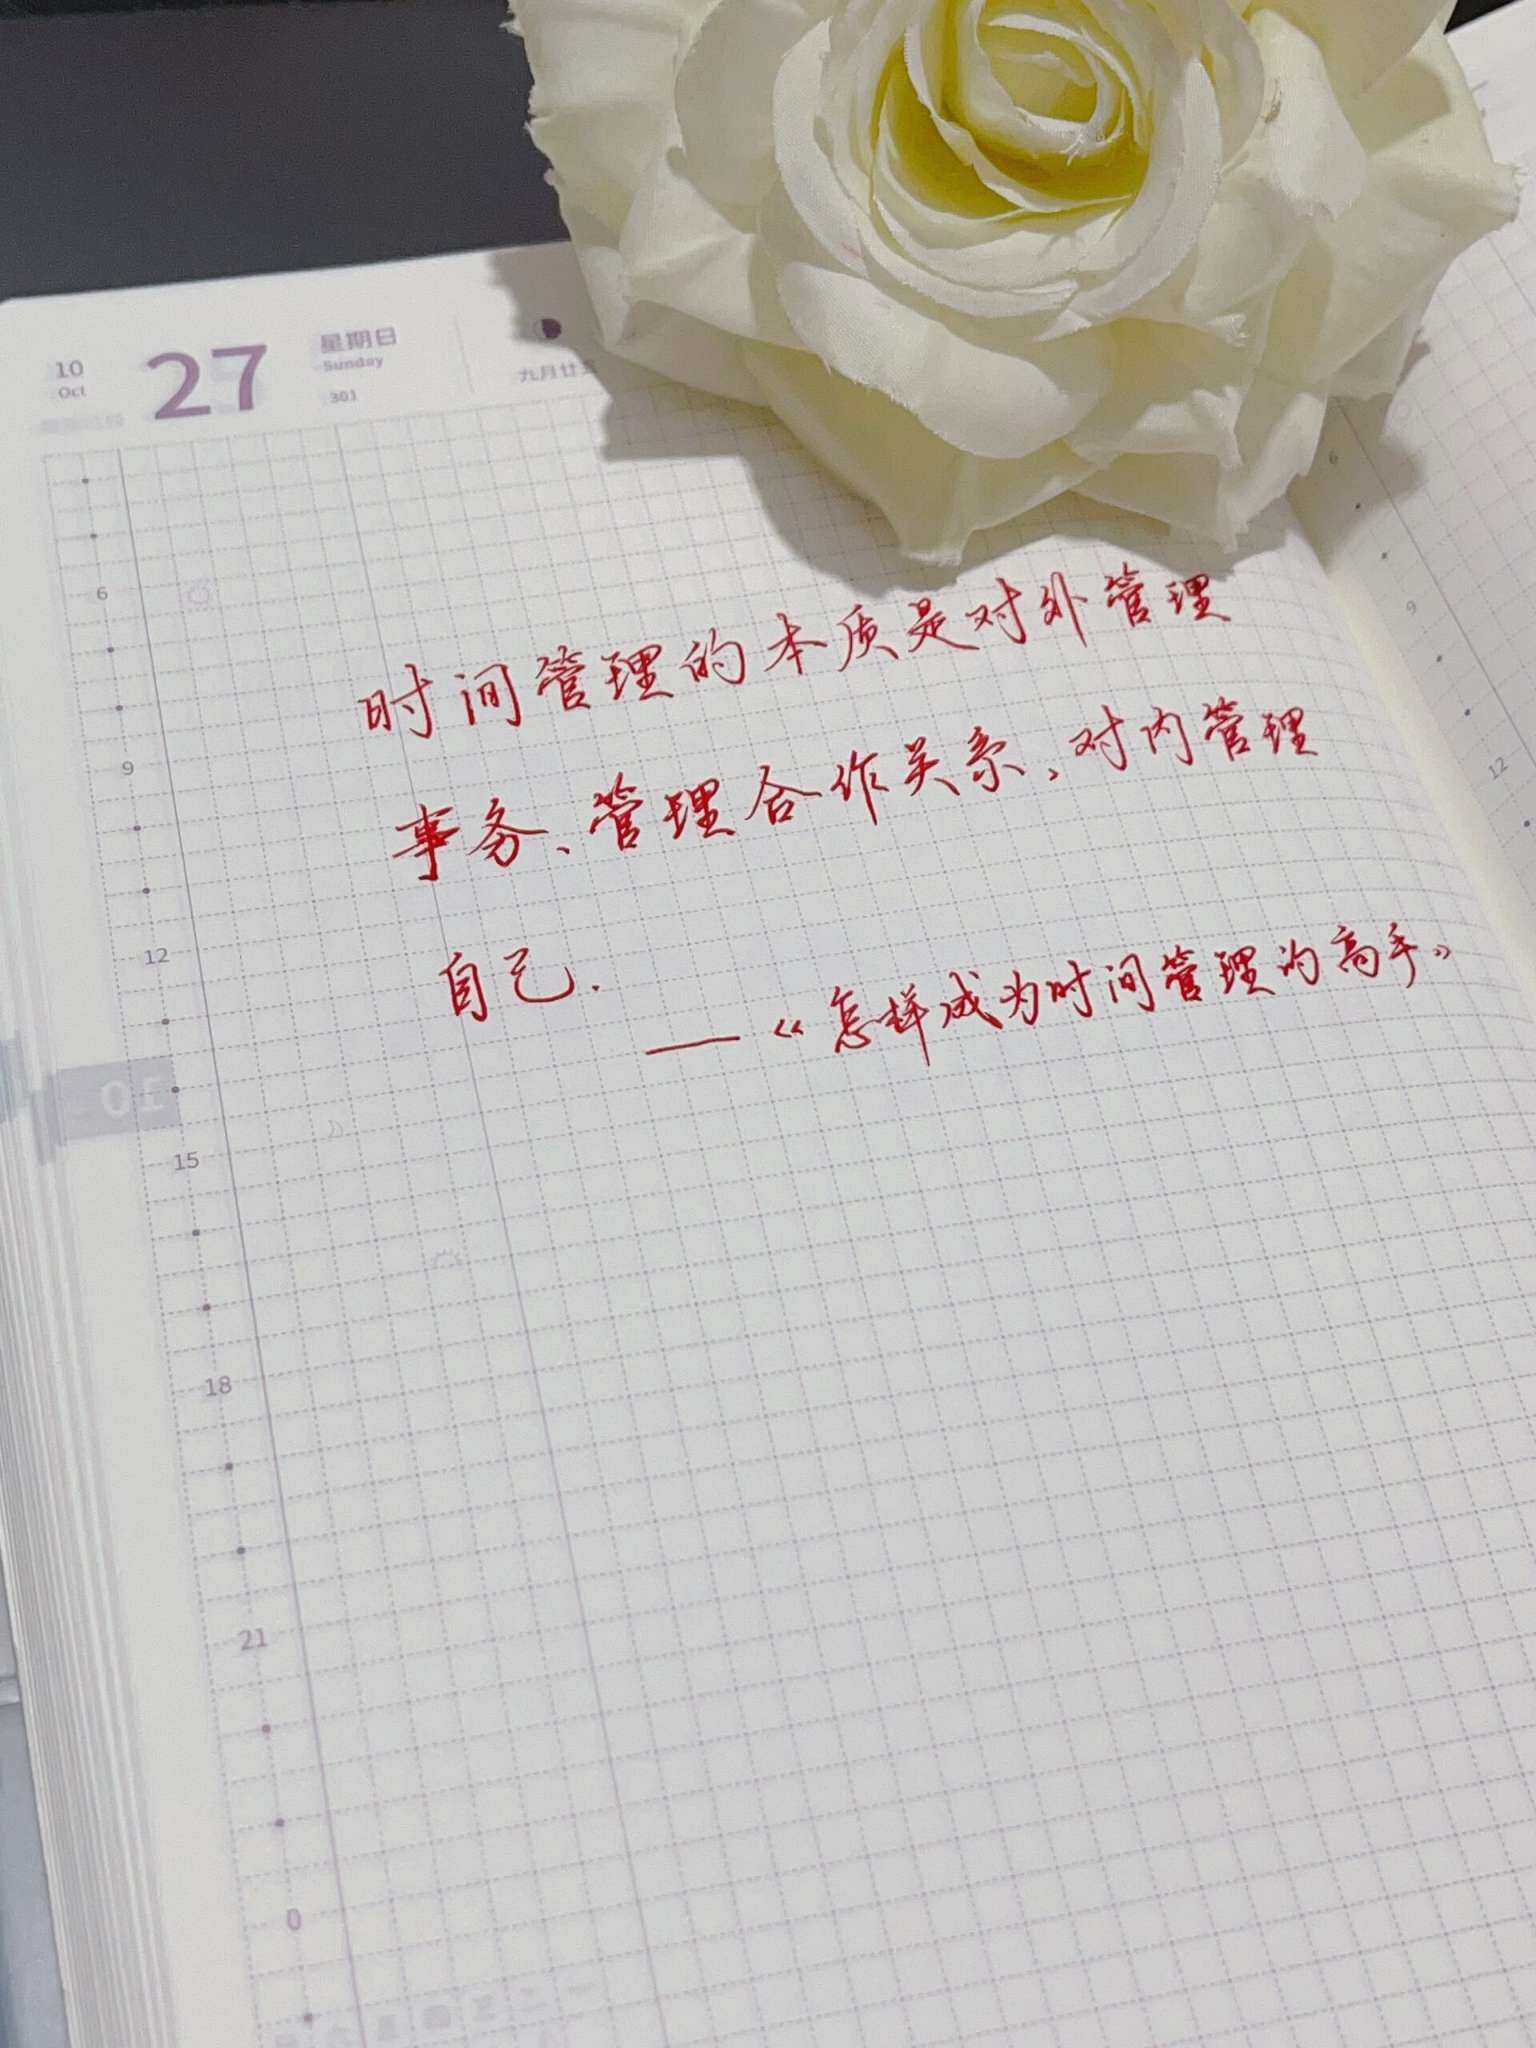 10
Oct
27
星期日
Sunday
301
九月廿五
6
9
12
15
18
21
0
时间管理的本质是对外管理
事务、管理合作关系，对内管理
自己.
——《怎样成为时间管理的高手》
6
9
12